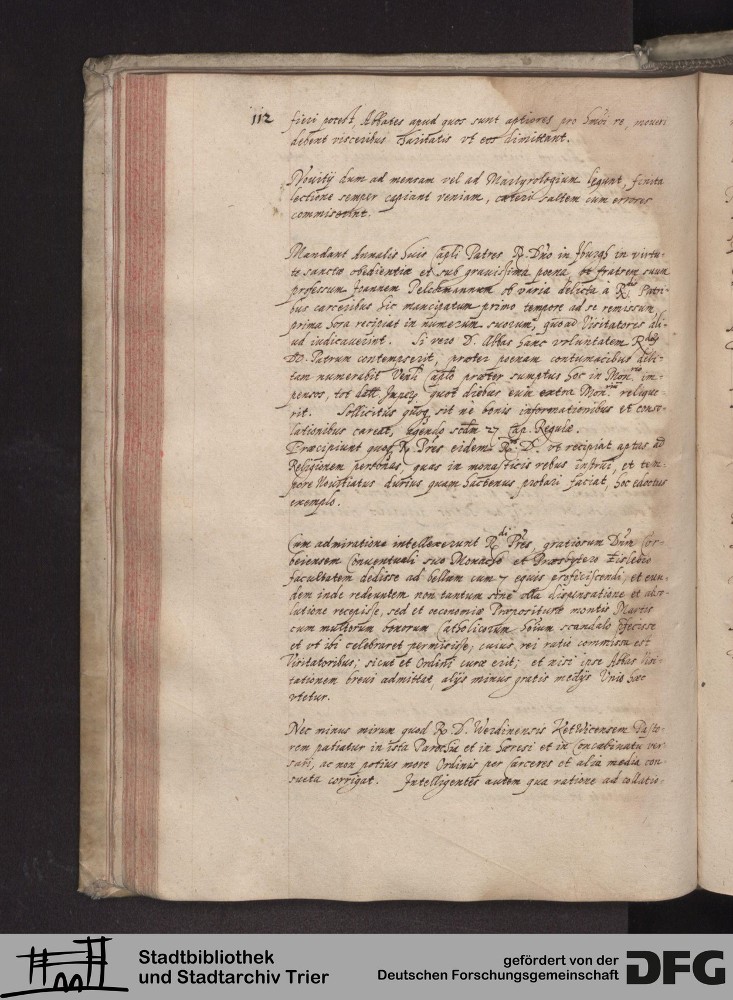 112
fieri potest, Abbates apud quos sunt aptiores pro hmōi re, moueri
debent visceribus charitatis vt eos dimittant.
Nouitij dum ad mensam vel ad Martyrologium legunt, finita
lectione semper capiant veniam, caeteri saltem cum errores
commiserint.
Mandant Annalis huius Capli Patres R. Dno in Jburgh in virtu-
te sanctae obedientiae et sub grauissima poena, vt fratrem suum
professum Joannem Pelckmannum ob varia delicta à Rdis Patri-
bus carceribus hic mancipatum primo tempore ad se remissum
prima hora recipiat in numerum suorum, quoad Visitatores ali-
ud iudicauerint. Si vero D. Abbas hanc voluntatem Rdorum
DD. Patrum contempserit, praeter poenam contumacibus debi-
tam numerabit Venli Caplo praeter sumptus hoc in Monrio im-
pensos, tot quot diebus eum extra Monrium relique-
rit. Sollicitus quoq sit ne bonis informationibus et conso-
lationibus careat, agendo scdm 27 Cap. Regulae.
Praecipiunt quoq R. Pres eidem Rdo D. vt recipiat aptas ad
Religionem personas, quas in monasticis rebus instrui, et tem-
pore Nouitiatus durius quam hactenus probari faciat, hoc edoctus
exemplo.
Cum admiratione intellexerunt Rdi Pres, gratiosum Dnm Cor-
beiensem Conuentuali suo Monacho et Praesbytero
facultatem dedisse ad bellum cum 7 equis proficiscendi, et eun-
dem inde redeuntem non tantum sine vlla dispensatione et abso-
lutione recepisse, sed et oeconomiae Praepositurae montis Martis
cum multorum bonorum Catholicorum scandalo praefecisse
et vt ibi celebraret permisisse; cuius rei ratio commissa est
Visitatoribus; sicut et Ordini curae erit; et nisi ipse Abbas Visi-
tationem breui admittat, alijs minus gratis medijs Unio haec
vtetur.
Nec minus mirum quod R. D. Werdinensis Ketwicensem Pasto-
rem patiatur in ista Parochia et in haeresi et in Concubinatu ver-
sari, ac non potius more Ordinis per Carceres et alia media con-
sueta corrigat. Intelligentes autem qua ratione ad collatio-
Stadtbibliothek
und Stadtarchiv Trier
gefördert von der
Deutschen Forschungsgemeinschaft
DFG